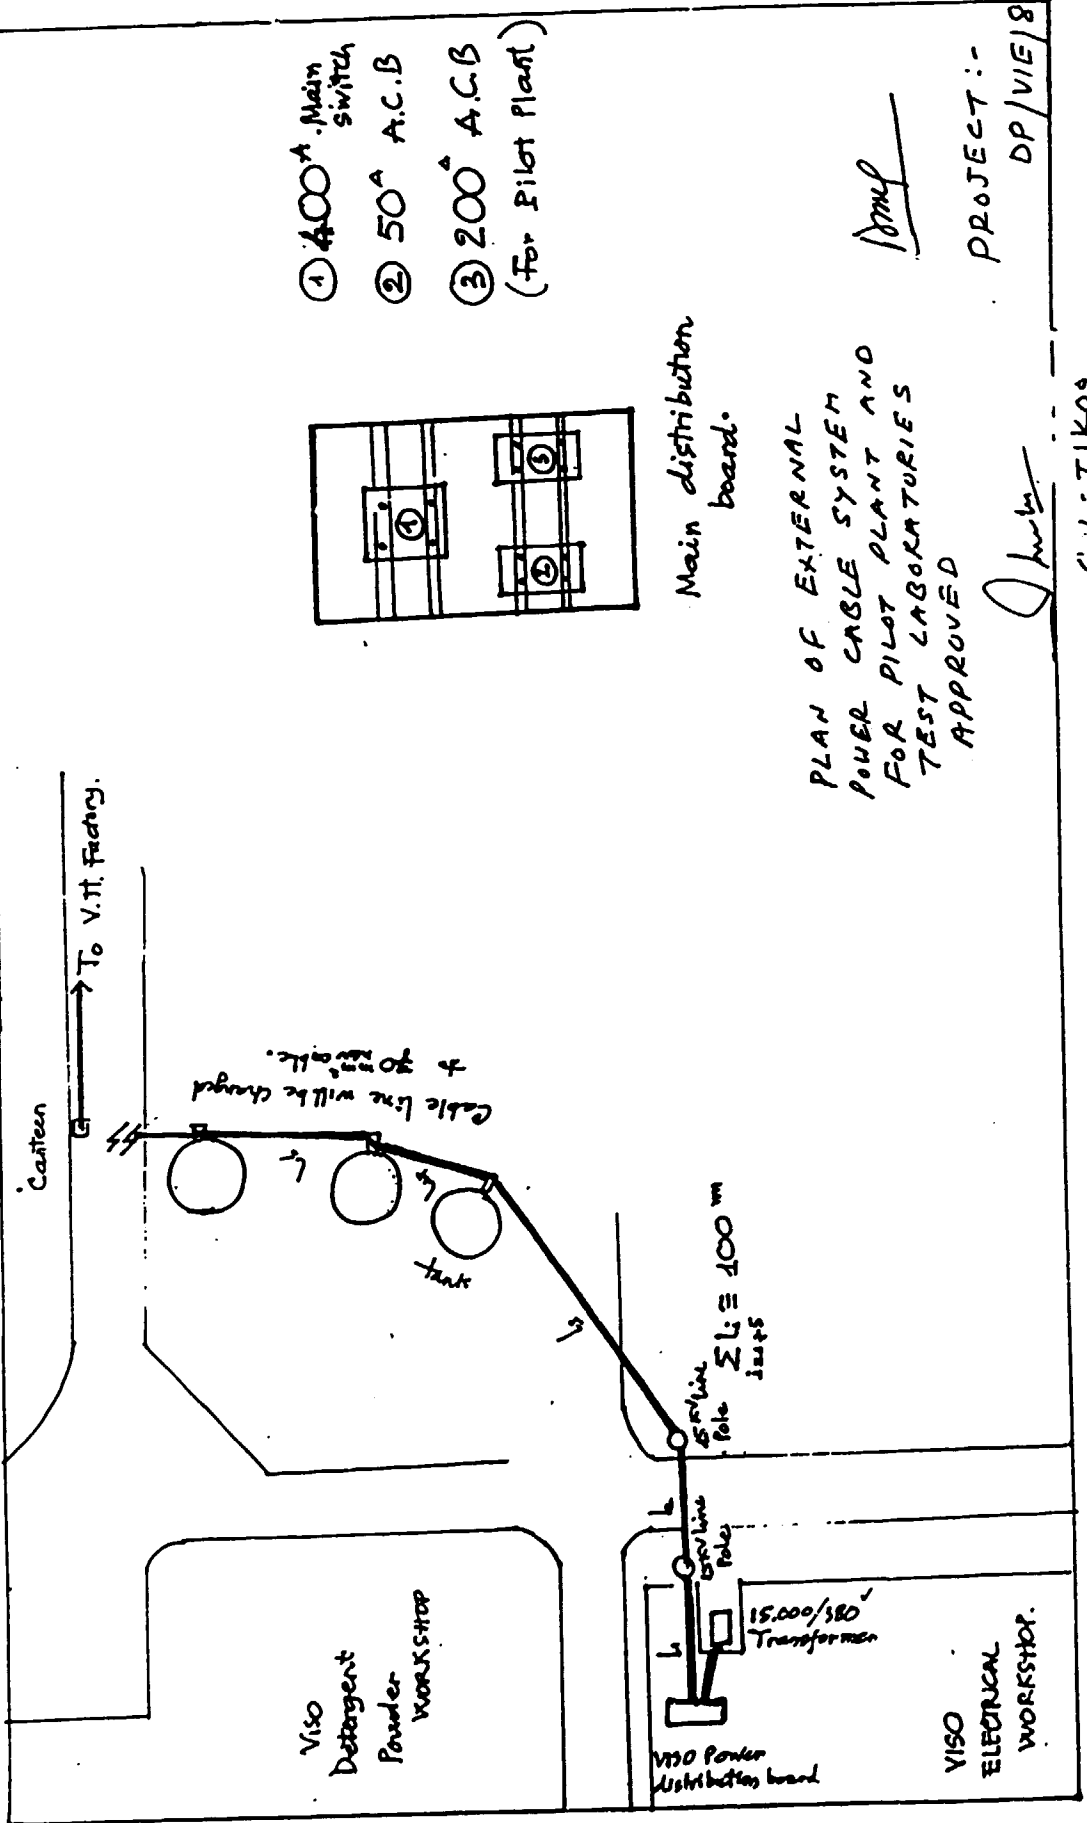 Canteen
To V.H. Factory.
Cable line will be changed
to 70 mm² new cable.
L5
L4
Tank
L3
ΣLi = 100 m
i=1÷5
15 KV line
Pole
L2
15 KV line
Pole
L1
15.000/380V
Transformer
VISO Power
distribution board
VISO
Detergent
Powder
WORKSHOP
VISO
ELECTRICAL
WORKSHOP.
① 400A. Main
switch
② 50A A.C.B
③ 200A A.C.B
(For Pilot Plant)
①
②
③
Main distribution
board.
PLAN OF EXTERNAL
POWER CABLE SYSTEM
FOR PILOT PLANT AND
TEST LABORATURIES
APPROVED
PROJECT:-
DP/VIE/8